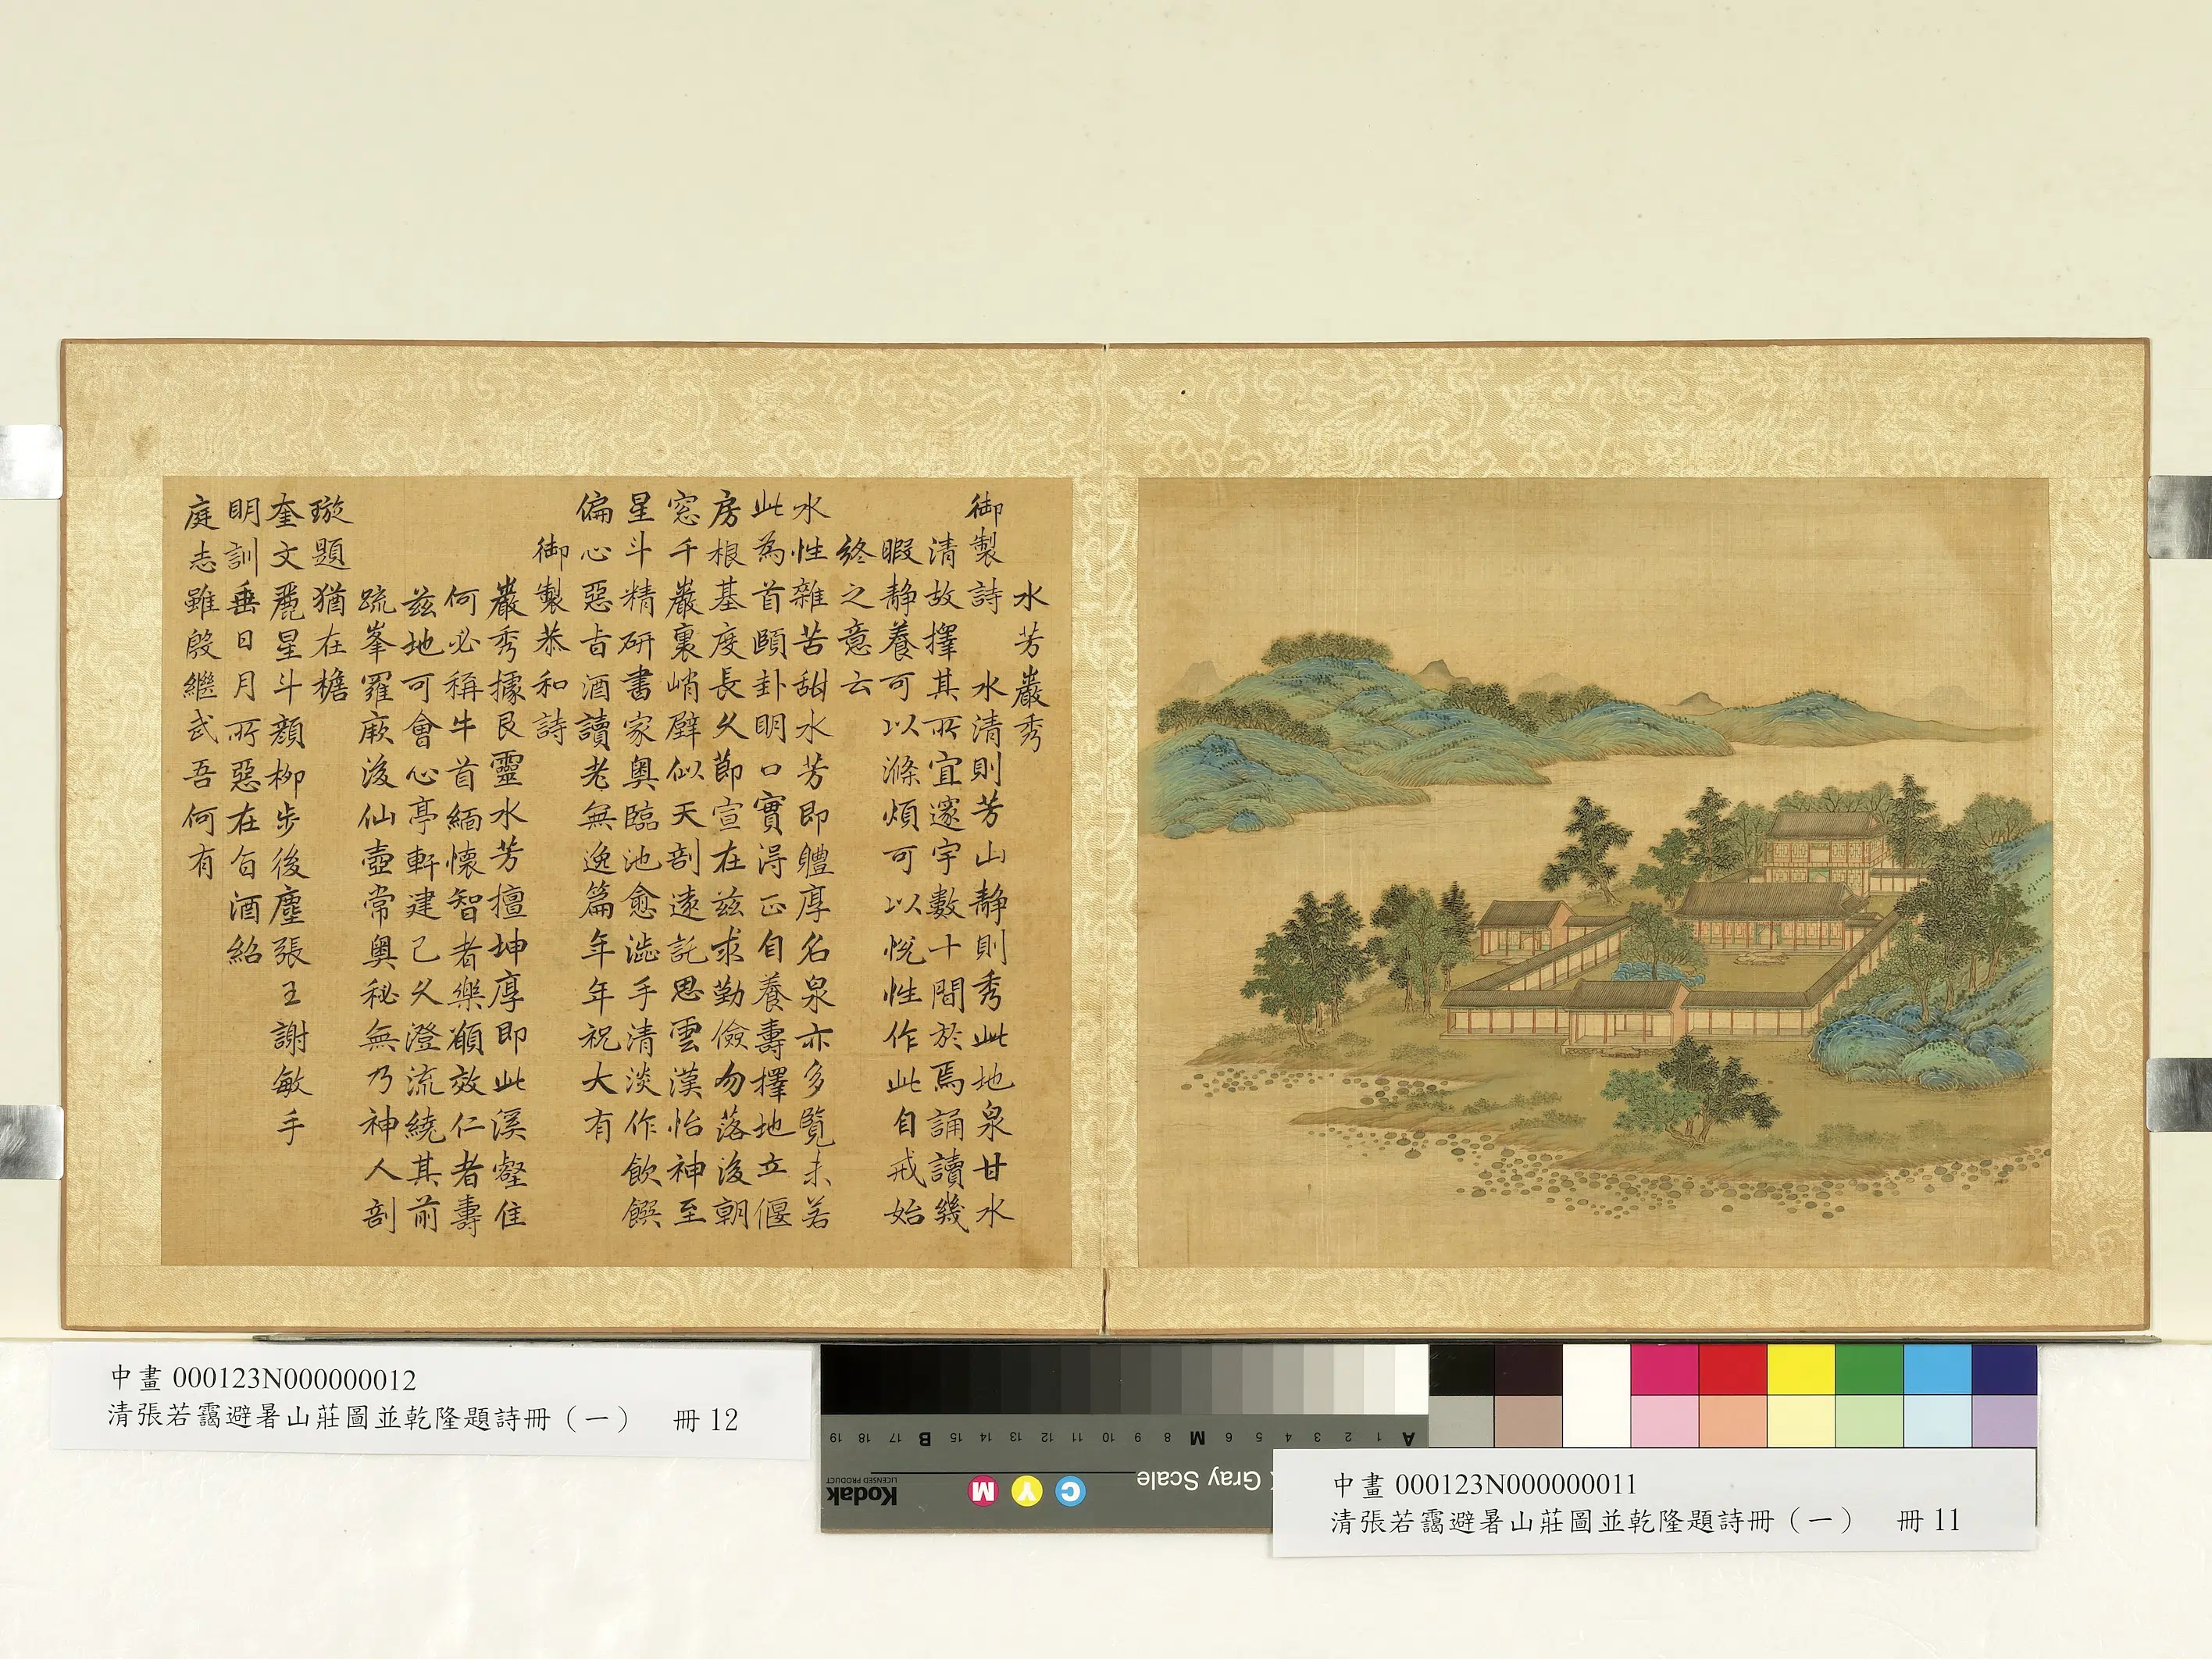 水芳巖秀
御製詩 水清則芳山靜則秀此地泉甘水
清故擇其所宜邃宇數十間於焉誦讀幾
暇靜養可以滌煩可以悅性作此自戒始
終之意云
水性雜苦甜水芳即體厚名泉亦多覽未若
此為首頤卦明口實淂正自養壽擇地立偃
房根基度長久節宣在茲求勤儉勿落後朝
窓千巖裏峭壁似天剖遠託思雲漢怡神至
星斗精研書家奧臨池愈澁手清淡作飲饌
偏心惡旨酒讀老無逸篇年年祝大有
御製恭和詩
巖秀據艮靈水芳擅坤厚即此溪壑佳
何必稱牛首緬懷智者樂願效仁者壽
茲地可會心亭軒建已久澄流繞其前
疏峯羅厥後仙壺常奧秘無乃神人剖
璇題猶在檐
奎文麗星斗顏柳步後塵張王謝敏手
明訓垂日月所惡在旨酒紹
庭志雖殷繼武吾何有
中畫 000123N000000012
清張若靄避暑山莊圖並乾隆題詩冊（一） 冊 12
A 1 2 3 4 5 6 M 8 9 10 11 12 13 14 15 B 17 18 19
Gray Scale
C Y M
Kodak
LICENSED PRODUCT
中畫 000123N000000011
清張若靄避暑山莊圖並乾隆題詩冊（一） 冊 11